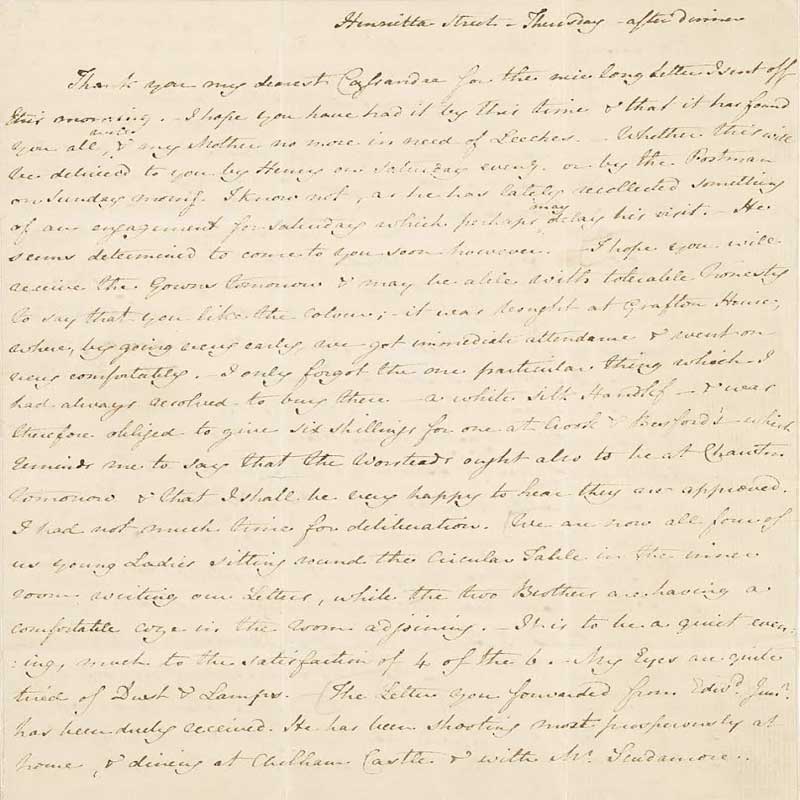 Henrietta Street - Thursday - after dinner
Thank you my dearest Cassandra for the nice long Letter I sent off
this morning. - I hope you have had it by this time & that it has found
you all well, & my Mother no more in need of Leeches. - Whether this will
be delivered to you by Henry on Saturday eveng. or by the Postman
on Sunday morng. I know not, as he has lately recollected something
of an engagement for Saturday, which perhaps may delay his visit. - He
seems determined to come to you soon however. - I hope you will
receive the Gown tomorrow & may be able with tolerable honesty
to say that you like the Colour; - it was bought at Grafton House,
where, by going very early, we got immediate attendance & went on
very comfortably. - I only forgot the one particular thing which I
had always resolved to buy there - a white silk Handkf - & was
therefore obliged to give six shillings for one at Crook & Besford's - which
reminds me to say that the Worsteads ought also to be at Chawton
tomorrow & that I shall be very happy to hear they are approved.
I had not much time for deliberation. We are now all four of
us young Ladies sitting round the Circular Table in the inner
room writing our Letters, while the two Brothers are having a
comfortable coze in the room adjoining. - It is to be a quiet even-
:ing, much to the satisfaction of 4 of the 6. - My Eyes are quite
tired of Dust & Lamps. The Letter you forwarded from Edwd. Junr.
has been duly received. He has been shooting most prosperously at
home, & dining at Chilham Castle & with Mr. Scudamore..